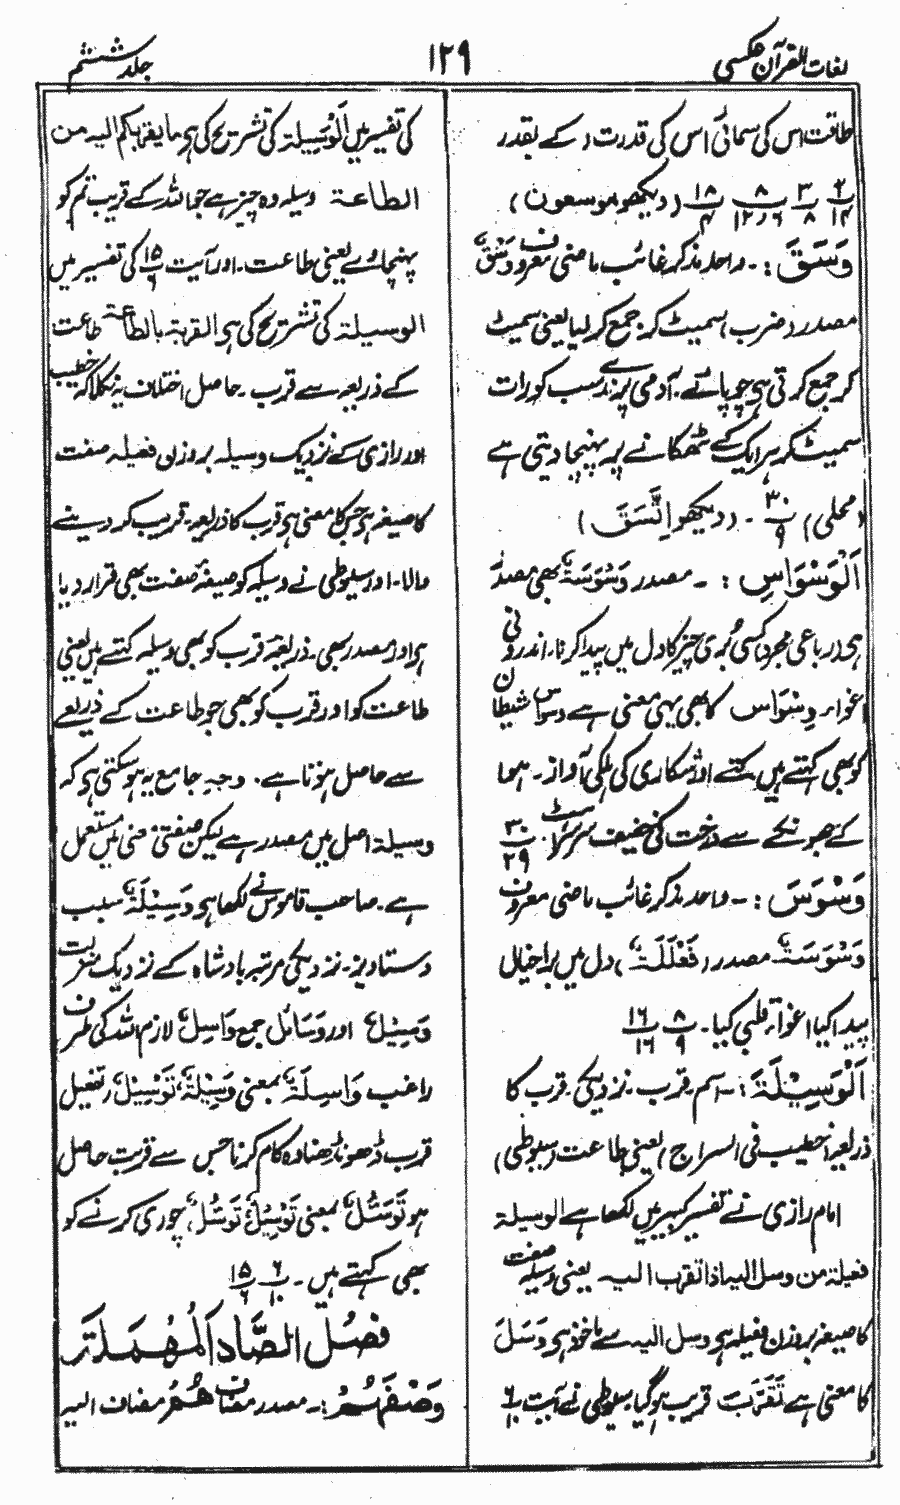 لغات القرآن عکسی
۱۲۹
جلد ششم
طاقت اس کی سمائی اس کی قدرت ( کے بقدر
۲/۱۴ ۳/۸ ۸/۱۲،۶ ۱۸/۴ (دیکھو موسعون)
وَسَقَ :۔ واحد مذکر غائب ماضی معروف وَسْقٌ
مصدر (ضرب) سمیٹ کر جمع کر لیا یعنی سمیٹ
کر جمع کرتی ہی چوپائے۔ آدمی پرندے سب کو رات
سمیٹ کر ہر ایک کے ٹھکانے پر پہنچا دیتی ہے
(محلی) ۳۰/۹ ۔ (دیکھو اِتَّسَقَ)
اَلْوَسْوَاسِ :۔ مصدر وَسْوَسَةٌ بھی مصدر
ہی (رباعی مجرد) کسی بُری چیز کا دل میں پیدا کرنا، اندرونی
اغواء وِسْوَاس کا بھی یہی معنی ہے وسواس شیطان
کو بھی کہتے ہیں۔ کتے اور شکاری کی ہلکی آواز۔ ہوا
کے جھونکے سے درخت کی خفیف سرسراہٹ ۳۰/۲۹
وَسْوَسَ :۔ واحد مذکر غائب ماضی معروف
وَسْوَسَةٌ مصدر (فَعْلَلَةٌ) دل میں برا خیال
پیدا کیا اغواء قلبی کیا۔ ۸/۹ ۱۶/۱۶
اَلْوَسِیْلَةَ :۔ اسم۔ قرب۔ نزدیکی۔ قرب کا
ذریعہ (خطیب فی السراج) یعنی طاعت (سیوطی)
امام رازی نے تفسیر کبیر میں لکھا ہے الوسیلة
فعیلة من وسل الیہ اذا تقرب الیہ یعنی وسیلہ صفت
کا صیغہ بروزن فعیلہ ہی وسل الیہ سے ماخوذ ہی وَسَلَ
کا معنی ہے تَقَرَّبَ قریب ہو گیا۔ سیوطی نے آیت ۶/۱۰
کی تفسیر میں اَلْوَسِیْلة کی تشریح کی ہی ما یقربکم الیہ من
الطاعة وسیلہ وہ چیز ہے جو اللہ کے قریب تم کو
پہنچا دے یعنی طاعت۔ اور آیت ۱۵/۶ کی تفسیر میں
الوسیلة کی تشریح کی ہی القربة بالطاعة طاعت
کے ذریعہ سے قرب۔ حاصل اختلاف یہ نکلا کہ خطیب
اور رازی کے نزدیک وسیلہ بروزن فعیلہ صفت
کا صیغہ ہی جس کا معنی ہی قرب کا ذریعہ۔ قریب کر دینے
والا۔ اور سیوطی نے وسیلہ کو صیغۂ صفت بھی قرار دیا
ہی اور مصدر بھی۔ ذریعۂ قرب کو بھی وسیلہ کہتے ہیں یعنی
طاعت کو اور قرب کو بھی جو طاعت کے ذریعے
سے حاصل ہوتا ہے۔ وجہِ جامع یہ ہو سکتی ہی کہ
وسیلة اصل میں مصدر ہے لیکن صفتی معنی میں مستعمل
ہے۔ صاحب قاموس نے لکھا ہی وَسِیْلَةٌ سبب
دستاویز۔ نزدیکی مرتبہ بادشاہ کے نزدیک منزلت
وَسِیْلٌ اور وَسَائل جمع وَاسِلٌ لازم اللہ کی طرف
راغب وَاسِلَةٌ بمعنی وَسِیْلَةٌ تَوْسِیْلٌ (تفعیل)
قرب ڈھونڈھنا وہ کام کرنا جس سے قربت حاصل
ہو تَوَسُّلٌ بمعنی تَوْسِیْلٌ تَوَسُّلٌ چوری کرنے کو
بھی کہتے ہیں۔ ۶/۱۰ ۱۵/۶
فصل الصّاد المُهمَلة
وَصْفَهُمْ :۔ مصدر مضاف هُمْ مضاف الیہ